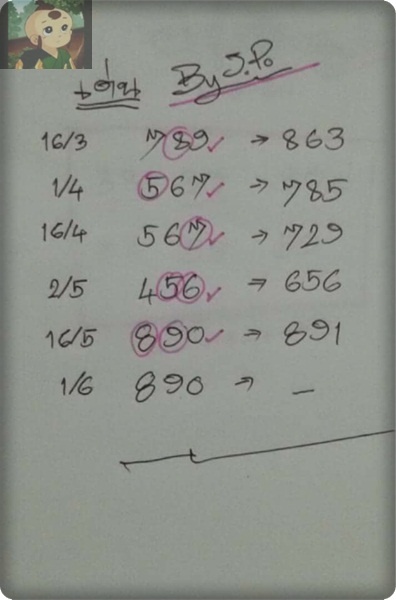 By J.P.
16/3 789 ✓ → 863
1/4 567 ✓ → 785
16/4 567 ✓ → 729
2/5 456 ✓ → 656
16/5 890 ✓ → 891
1/6 890 → –